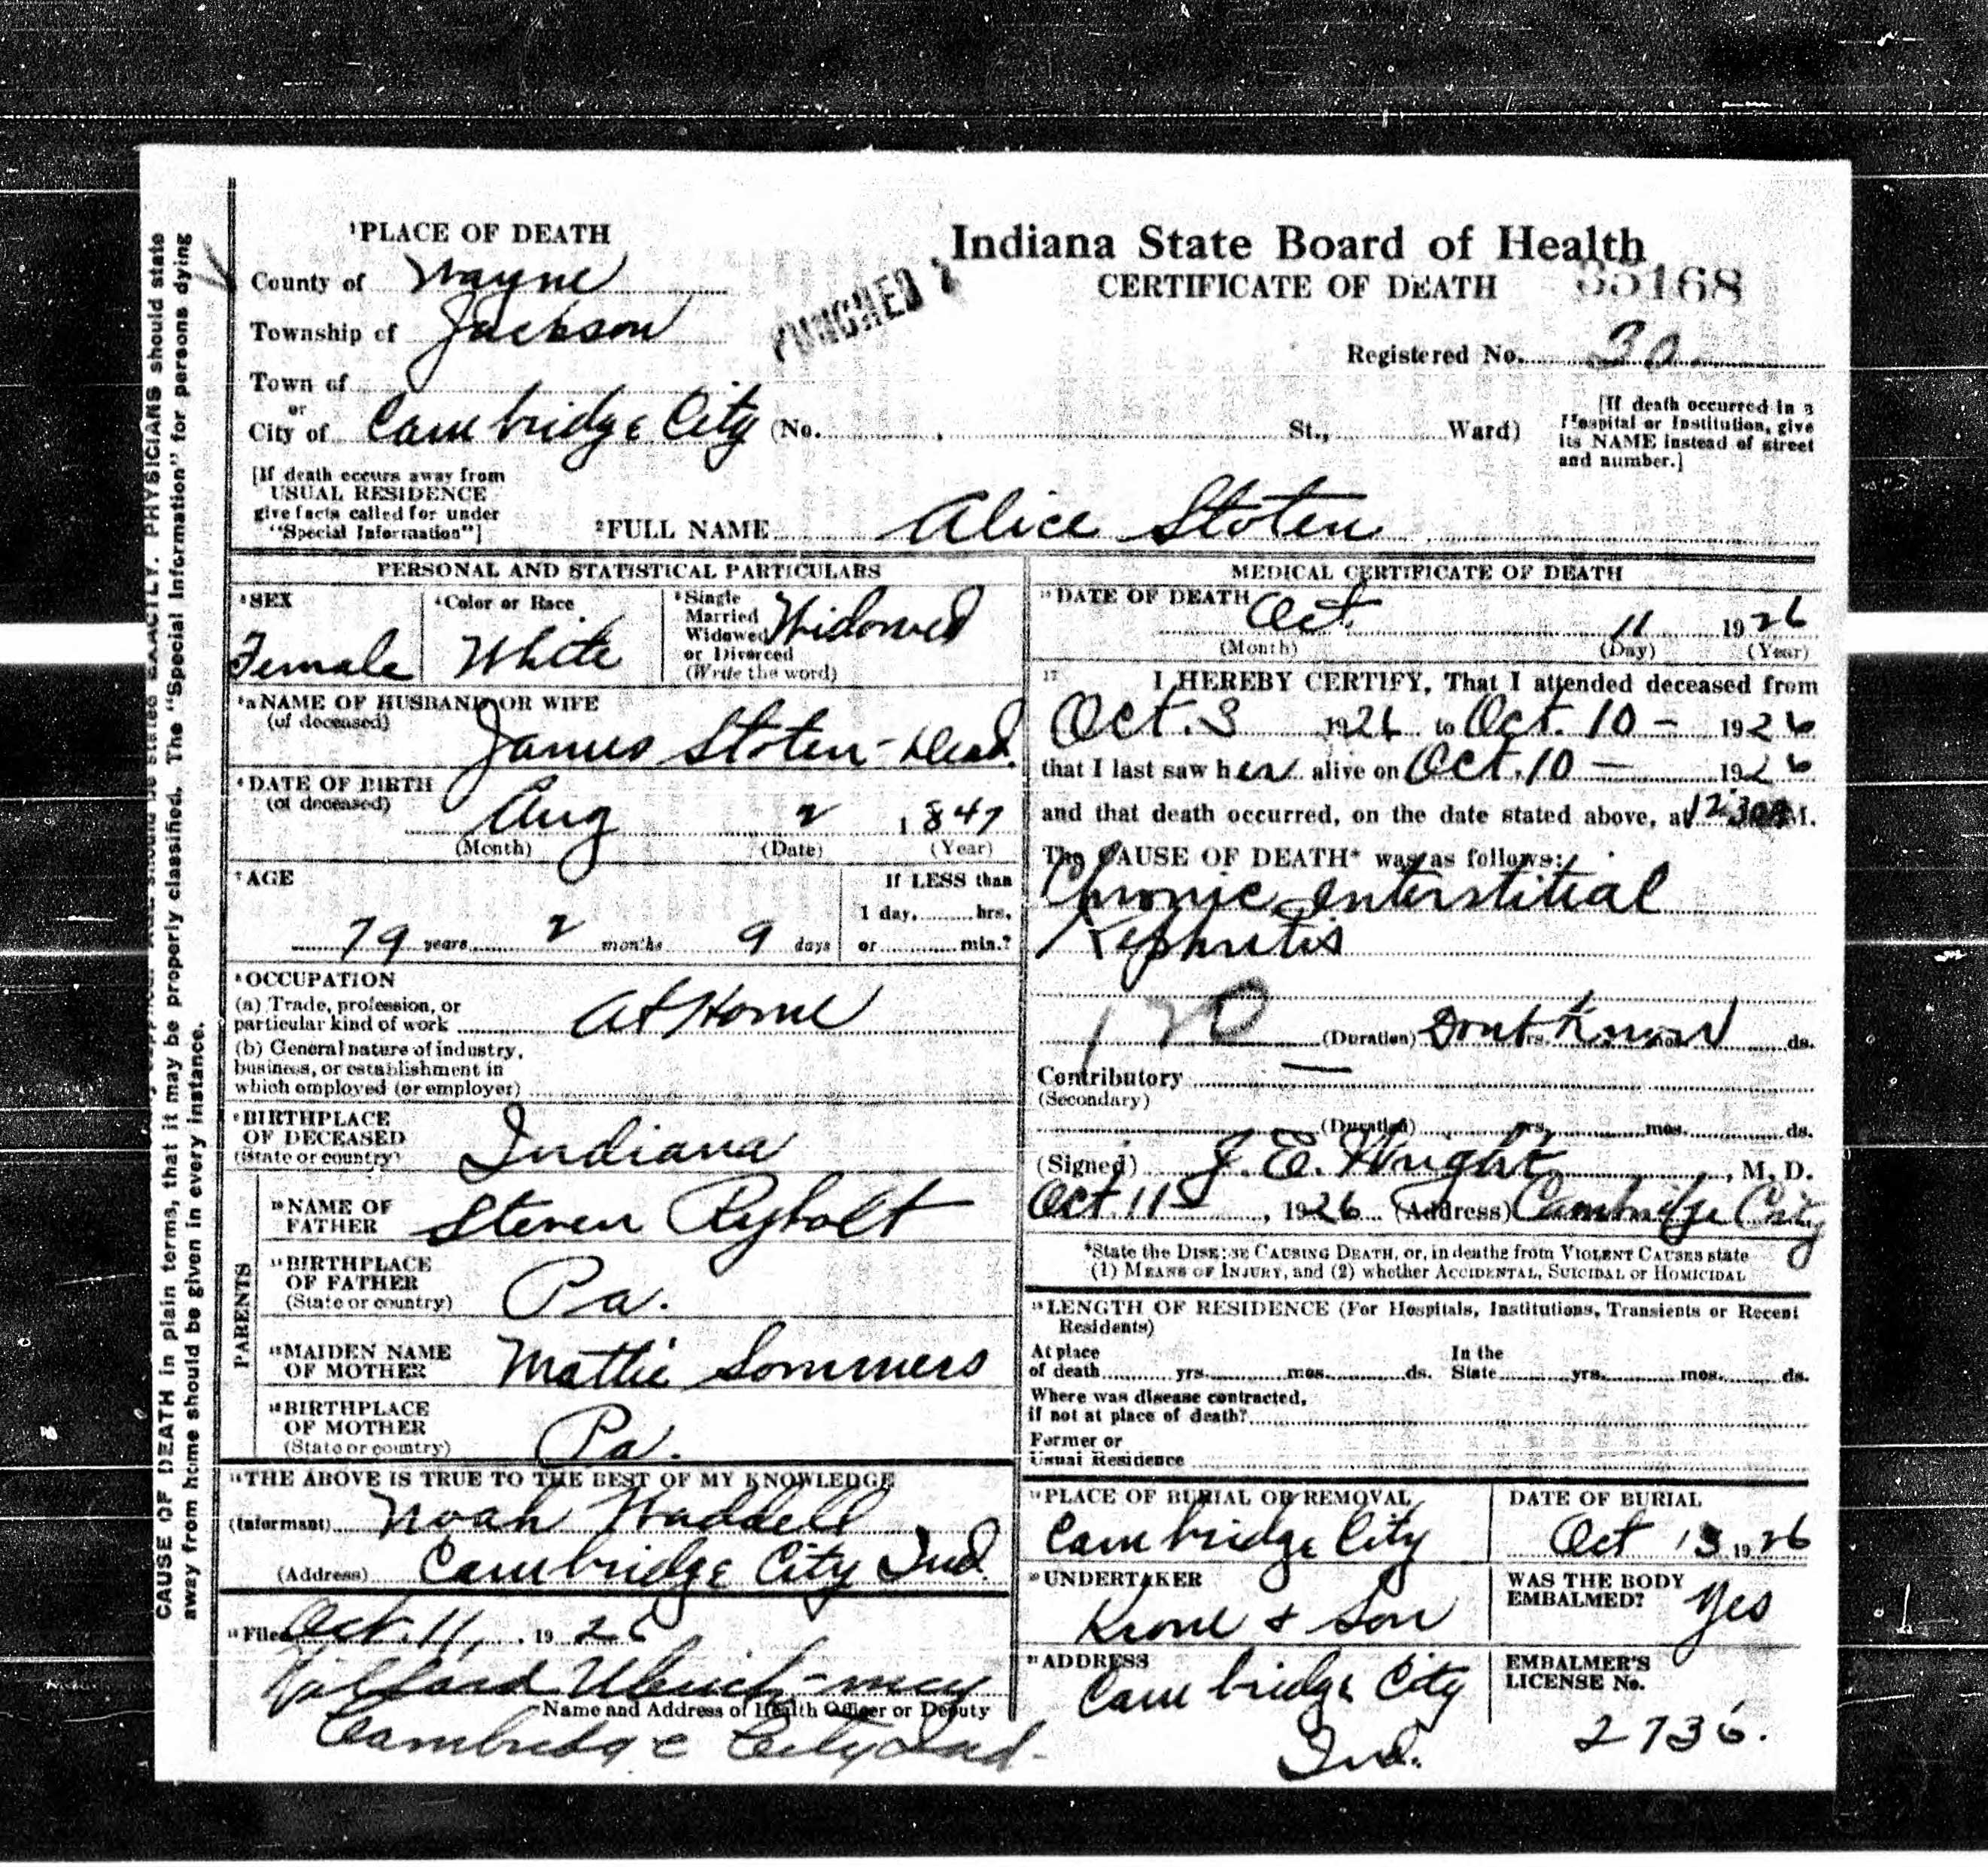 CAUSE OF DEATH in plain terms, that it may be properly classified. The "Special Information" for persons dying
away from home should be given in every instance.
PHYSICIANS should state
¹PLACE OF DEATH
County of Wayne
Township of Jackson
Town of
or
City of Cambridge City (No. St., Ward)
[If death occurs away from
USUAL RESIDENCE
give facts called for under
"Special Information"]
PUNCHED
Indiana State Board of Health
CERTIFICATE OF DEATH 35168
Registered No. 30
[If death occurred in a
Hospital or Institution, give
its NAME instead of street
and number.]
²FULL NAME Alice Stoten
PERSONAL AND STATISTICAL PARTICULARS
³SEX
Female
⁴Color or Race
White
⁵Single
Married
Widowed
or Divorced
(Write the word)
Widowed
⁵ᵃNAME OF HUSBAND OR WIFE
(of deceased)
James Stoten - Dead.
⁶DATE OF BIRTH
(of deceased)
Aug 2 1847
(Month) (Date) (Year)
⁷AGE
79 years 2 months 9 days
If LESS than
1 day, hrs.
or min.?
⁸OCCUPATION
(a) Trade, profession, or
particular kind of work At Home
(b) General nature of industry,
business, or establishment in
which employed (or employer)
⁹BIRTHPLACE
OF DECEASED
(State or country)
Indiana
PARENTS
¹⁰NAME OF
FATHER
Steven Ryholt
¹¹BIRTHPLACE
OF FATHER
(State or country)
Pa.
¹²MAIDEN NAME
OF MOTHER
Mattie Sommers
¹³BIRTHPLACE
OF MOTHER
(State or country)
Pa.
¹⁴THE ABOVE IS TRUE TO THE BEST OF MY KNOWLEDGE
(Informant) Noah Waddell
(Address) Cambridge City Ind.
¹⁵Filed Oct. 11, 1926
Ulrich
Name and Address of Health Officer or Deputy
Cambridge City Ind.
MEDICAL CERTIFICATE OF DEATH
¹⁶DATE OF DEATH
Oct. 11 1926
(Month) (Day) (Year)
¹⁷ I HEREBY CERTIFY, That I attended deceased from
Oct. 3 1926 to Oct. 10 - 1926
that I last saw her alive on Oct. 10 - 1926
and that death occurred, on the date stated above, at 12:30 A M.
The CAUSE OF DEATH* was as follows:
Chronic Interstitial
Nephritis
120 (Duration) Dont Know ds.
Contributory —
(Secondary)
(Duration) yrs. mos. ds.
(Signed) J. E. Wright, M. D.
Oct 11, 1926 (Address) Cambridge City
*State the DISEASE CAUSING DEATH, or, in deaths from VIOLENT CAUSES state
(1) MEANS OF INJURY, and (2) whether ACCIDENTAL, SUICIDAL or HOMICIDAL
¹⁸LENGTH OF RESIDENCE (For Hospitals, Institutions, Transients or Recent
Residents)
At place
of death yrs. mos. ds.
In the
State yrs. mos. ds.
Where was disease contracted,
if not at place of death?
Former or
Usual Residence
¹⁹PLACE OF BURIAL OR REMOVAL
Cambridge City
DATE OF BURIAL
Oct 13 1926
²⁰UNDERTAKER
Krone & Son
WAS THE BODY
EMBALMED? Yes
²¹ADDRESS
Cambridge City
Ind.
EMBALMER'S
LICENSE No.
2736.